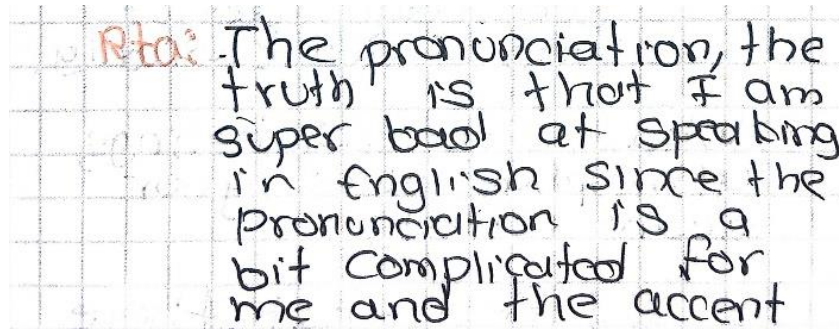 Rta: The pronunciation, the
truth is that I am
super bad at speaking
in English since the
pronunciation is a
bit complicated for
me and the accent